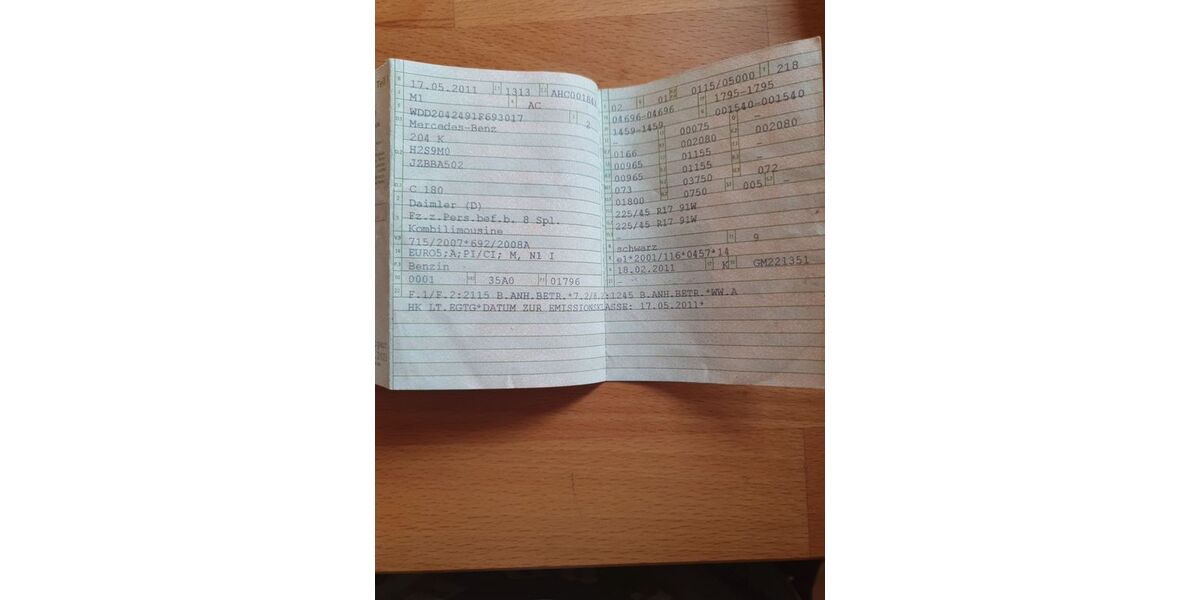 17.05.2011 1313 AHC00184
M1 AC
WDD2042491F693017 2
Mercedes-Benz
204 K
H2S9M0
JZBBA502
C 180
Daimler (D)
Fz.z.Pers.bef.b. 8 Spl.
Kombilimousine
715/2007*692/2008A
EURO5;A;PI/CI; M, N1 I
Benzin
0001 35A0 01796
02 01 0115/05000 218
04696-04696 1795-1795
1459-1459 001540-001540
00075 -
0166 002080 002080
00965 01155 -
00965 01155 -
073 03750 072
01800 0750 005 -
225/45 R17 91W
225/45 R17 91W
-
schwarz 9
e1*2001/116*0457*14
18.02.2011 K GM221351
-
F.1/F.2:2115 B.ANH.BETR.*7.2/8.2:1245 B.ANH.BETR.*WW.A
HK LT.EGTG*DATUM ZUR EMISSIONSKLASSE: 17.05.2011*